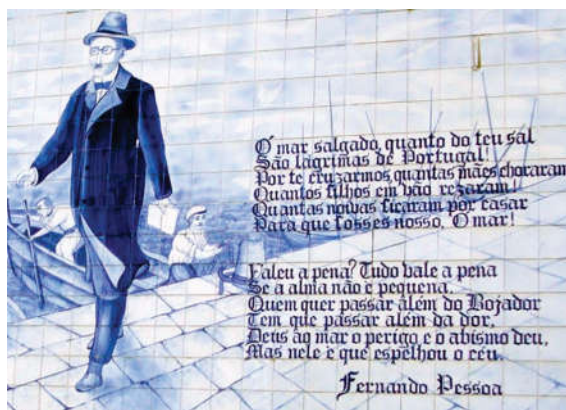 Ó mar salgado, quanto do teu sal
São lágrimas de Portugal!
Por te cruzarmos, quantas mães choraram,
Quantos filhos em vão rezaram!
Quantas noivas ficaram por casar
Para que fosses nosso, Ó mar!
Valeu a pena? Tudo vale a pena
Se a alma não é pequena.
Quem quer passar além do Bojador
Tem que passar além da dor.
Deus ao mar o perigo e o abismo deu,
Mas nele é que espelhou o céu.
Fernando Pessoa